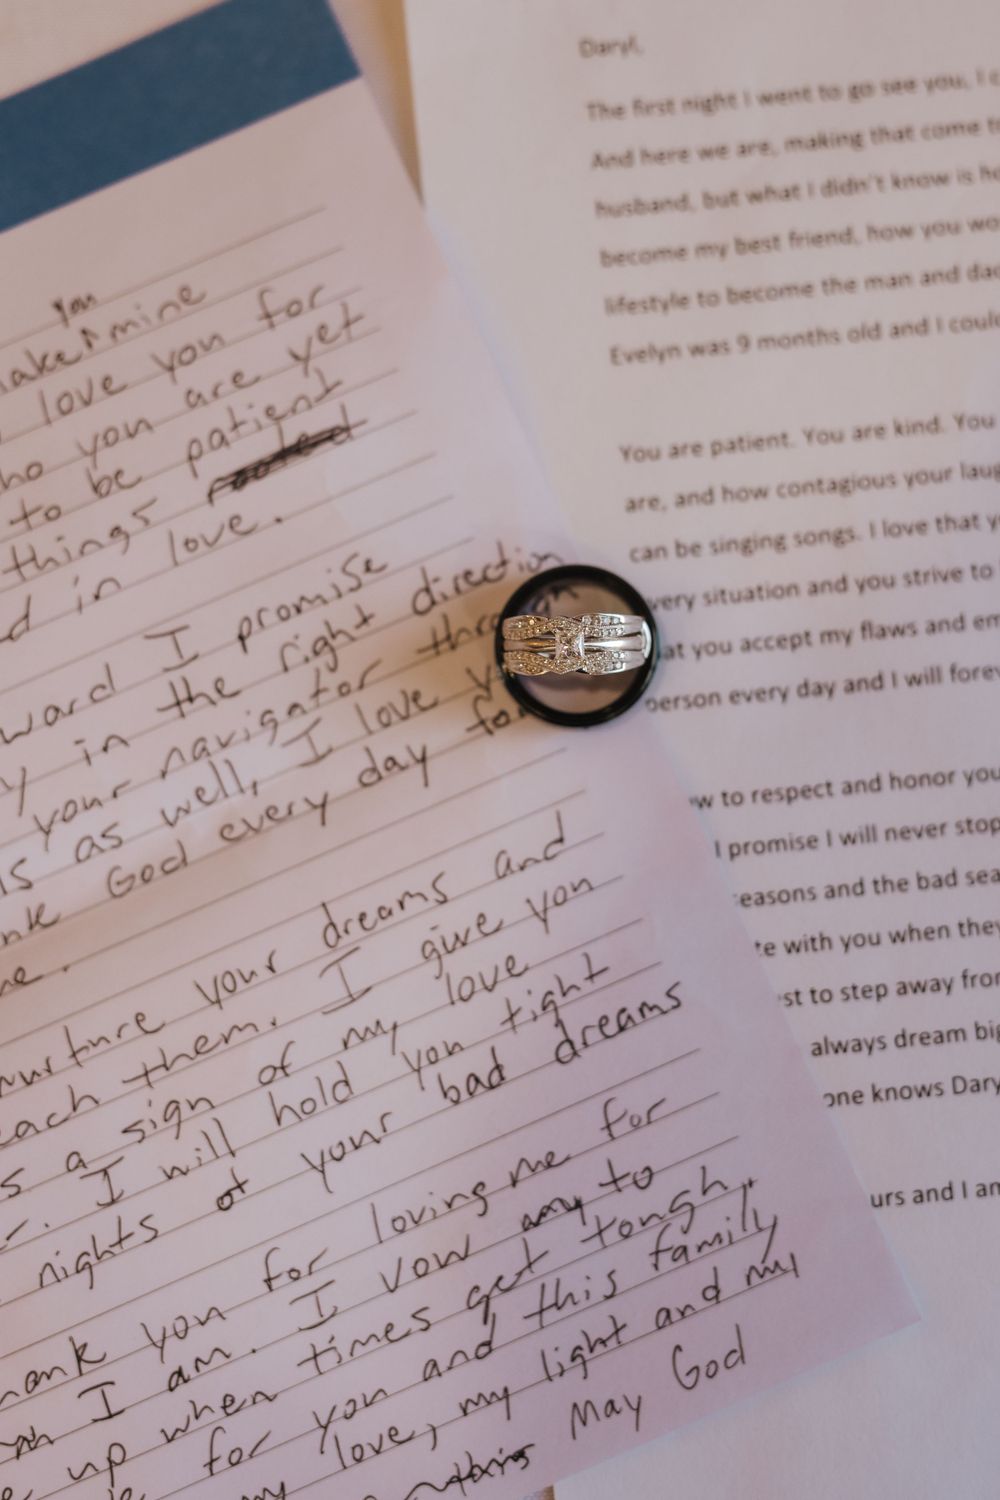 you
make mine
love you for
who you are yet
to be patient
things
in love.
ward I promise
in the right direction
your navigator through
as well, I love
God every day for
nurture your dreams and
each them. I give you
a sign of my love
I will hold you tight
nights of your bad dreams
for loving me for
I am. I vow to
up when times get tough,
for you and this family
my love, my light and my
May God
Daryl,
The first night I went to go see you, I
And here we are, making that come
husband, but what I didn't know is
become my best friend, how you
lifestyle to become the man and
Evelyn was 9 months old and I
You are patient. You are kind. You
are, and how contagious your
can be singing songs. I love that
very situation and you strive to
at you accept my flaws and
person every day and I will
w to respect and honor you
I promise I will never stop
easons and the bad
te with you when they
st to step away from
always dream big
one knows Dary
urs and I am